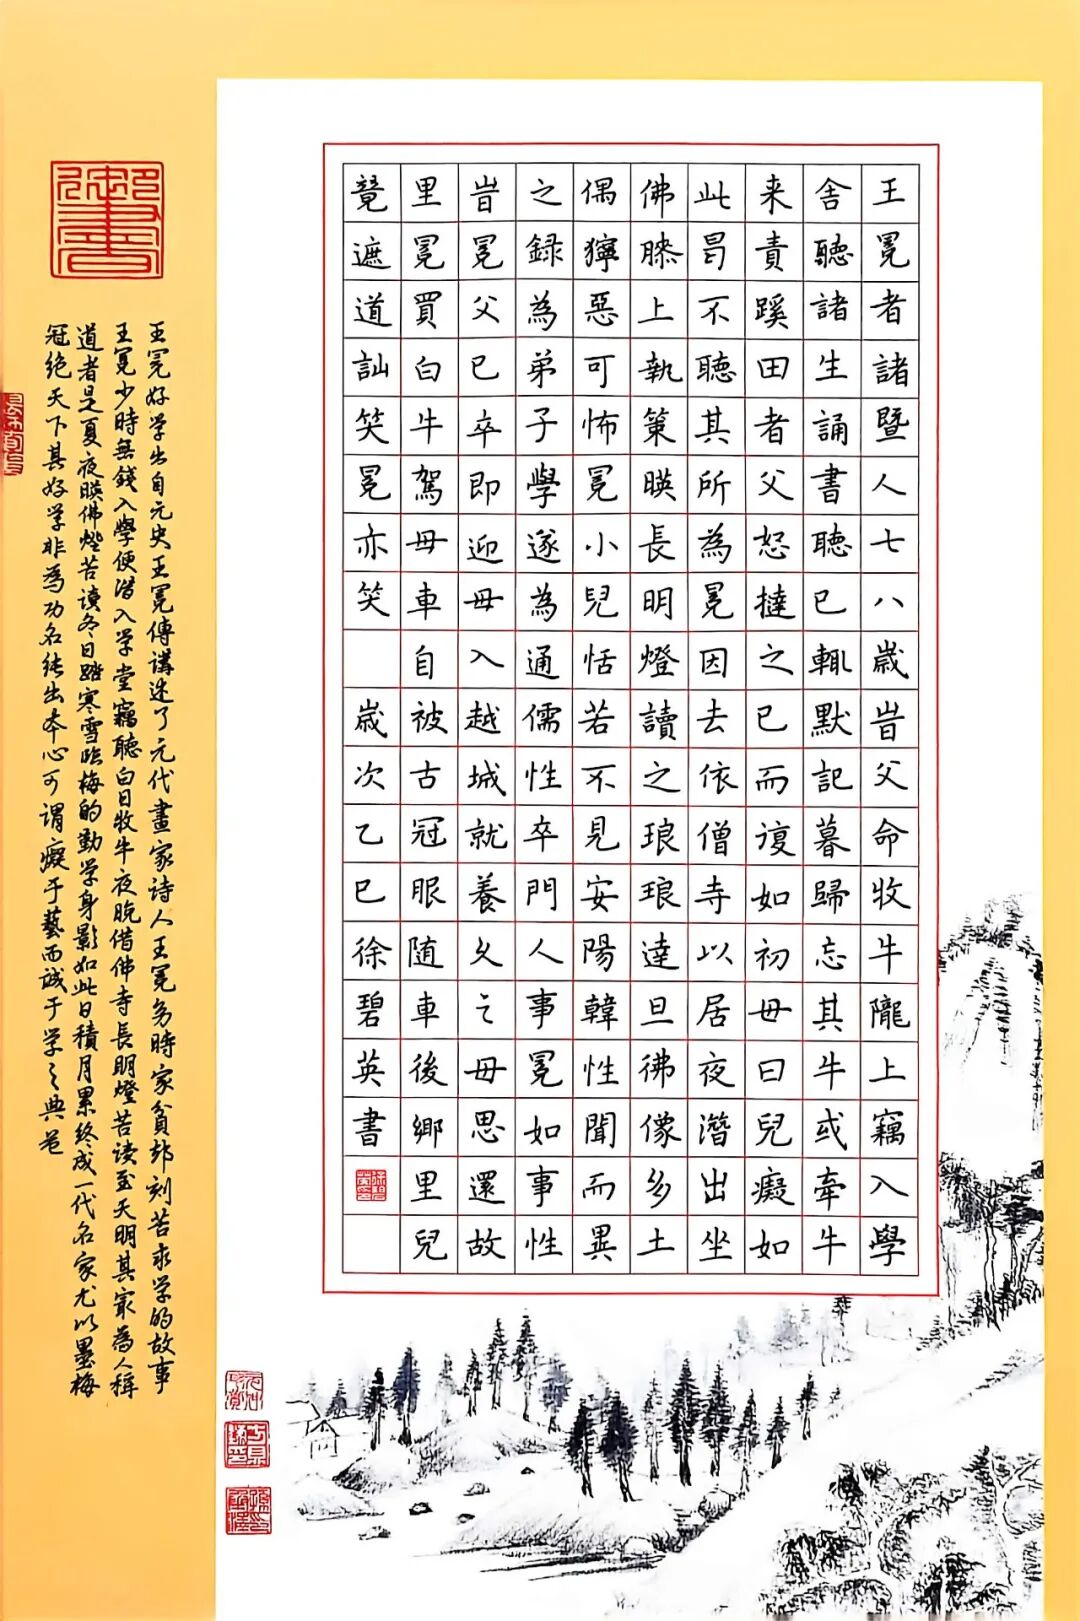 王冕者諸暨人七八歲旹父命牧牛隴上竊入學
舍聽諸生誦書聽已輒默記暮歸忘其牛或牽牛
来責蹊田者父怒撻之已而復如初母曰兒癡如
此曷不聽其所為冕因去依僧寺以居夜潛出坐
佛膝上執策暎長明燈讀之琅琅達旦彿像多土
偶獰惡可怖冕小兒恬若不見安陽韓性聞而異
之録為弟子學遂為通儒性卒門人事冕如事性
旹冕父已卒即迎母入越城就養久之母思還故
里冕買白牛駕母車自被古冠服随車後鄉里兒
競遮道訕笑冕亦笑 歲次乙巳徐碧英書
王冕好学出自元史王冕傳講述了元代畫家诗人王冕幼時家貧却刻苦求学的故事
王冕少時無錢入學便潜入学堂竊聽白日牧牛夜晚借佛寺長明燈苦读至天明其最為人稱
道者是夏夜暎佛燈苦讀冬日踏寒雪臨梅的勤学身影如此日積月累終成一代名家尤以墨梅
冠绝天下其好学非為功名纯出本心可谓癡于藝而誠于学之典范